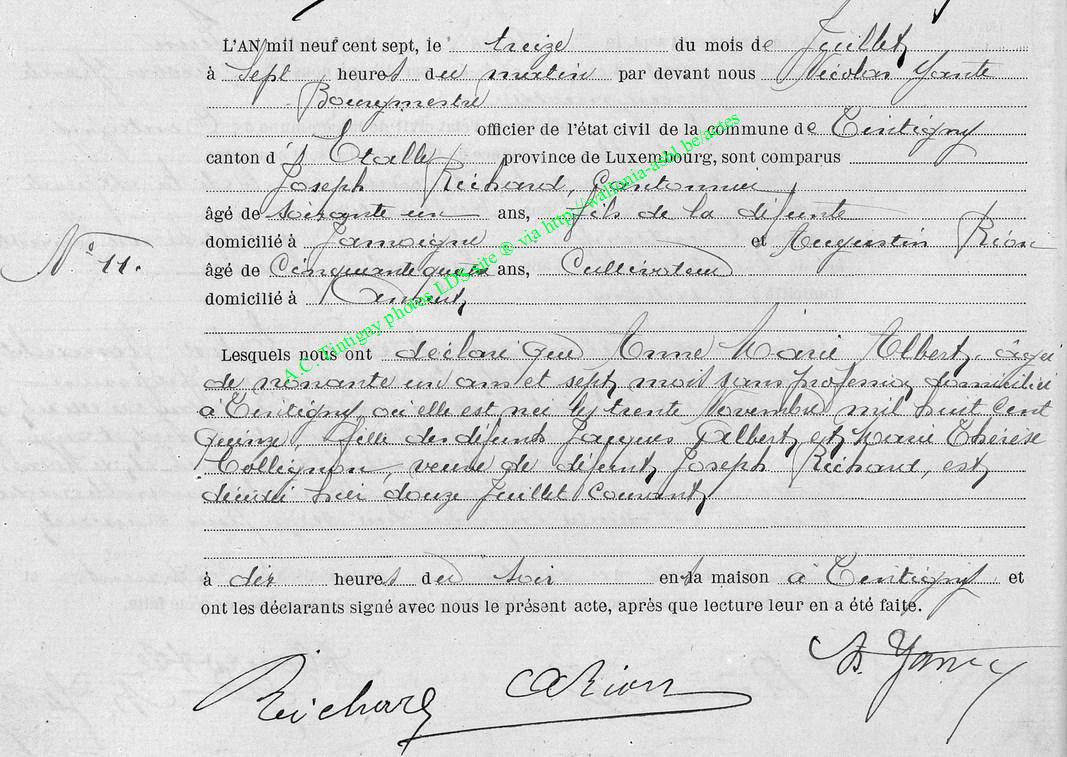 L'AN mil neuf cent sept, le treize du mois de Juillet
à sept heures du matin par devant nous Nicolas Yante
Bourgmestre
officier de l'état civil de la commune de Tintigny
canton d'Etalle province de Luxembourg, sont comparus
Joseph Richard, Cantonnier
âgé de soixante un ans, fils de la défunte
domicilié à Jamoigne et Augustin Rion
N° 11.
âgé de Cinquante quatre ans, Cultivateur
domicilié à
Lesquels nous ont déclaré que Anne Marie Albert, âgée
de nonante un ans et sept mois sans profession, domiciliée
à Tintigny, où elle est née le trente Novembre mil huit cent
quinze, fille des défunts Jacques Albert et Marie Thérèse
Collignon, veuve de défunt Joseph Richard, est
décédée hier douze Juillet courant
à dix heures du soir en sa maison à Tintigny et
ont les déclarants signé avec nous le présent acte, après que lecture leur en a été faite.
Richard A Rion N. Yante
A.C. Tintigny photos LD's site ® via http://wallonia-asbl.be/actes